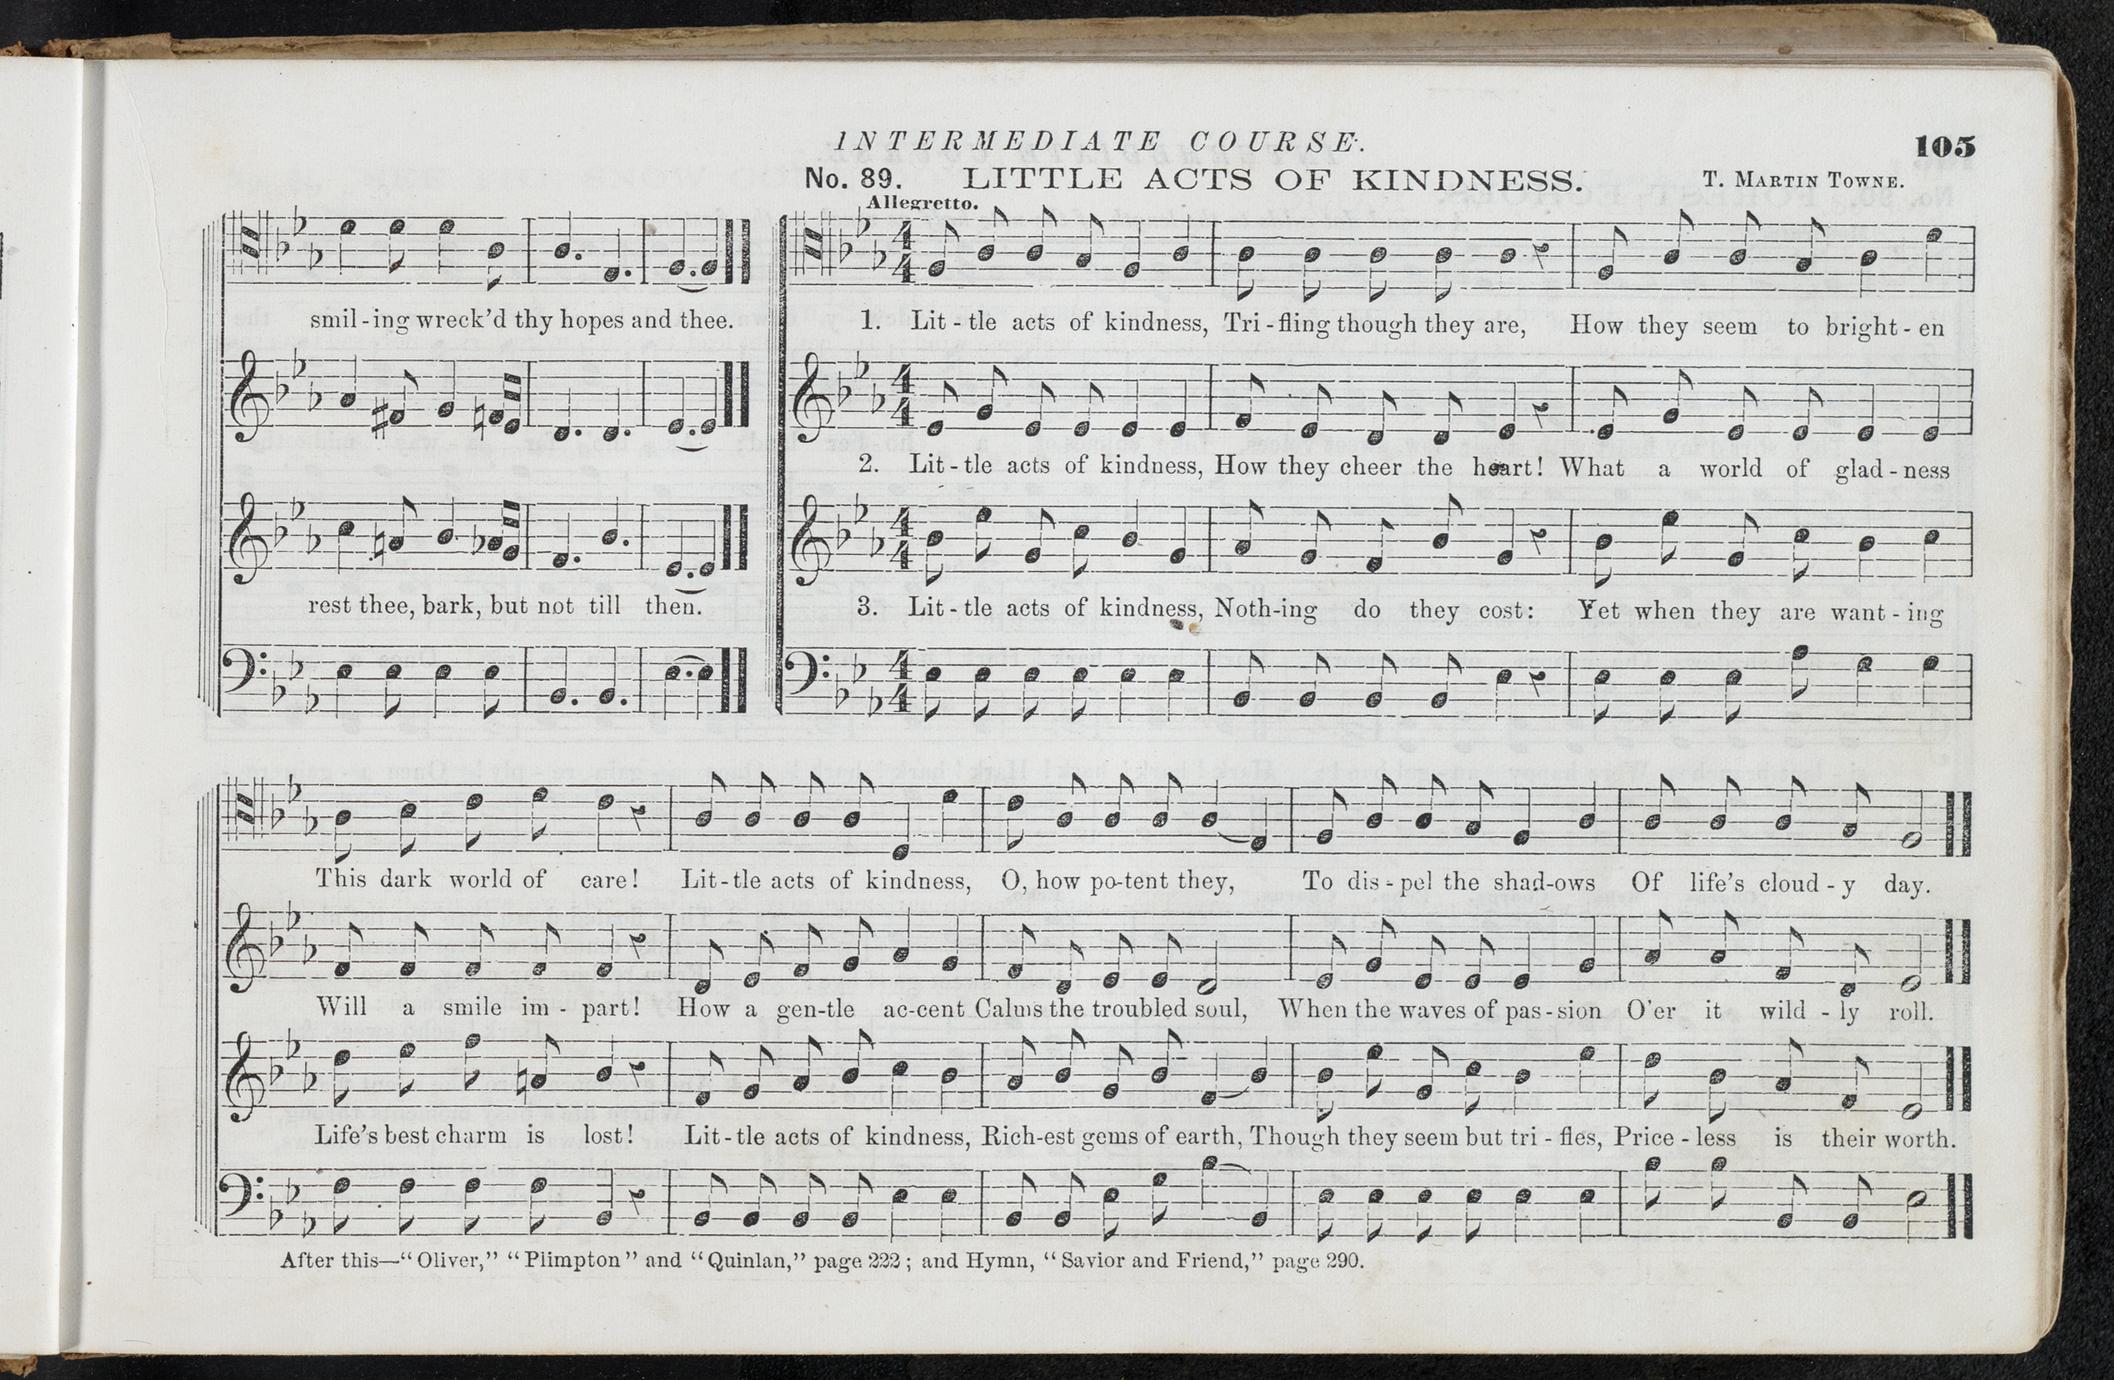 INTERMEDIATE COURSE.
105
No. 89. LITTLE ACTS OF KINDNESS. T. MARTIN TOWNE.
Allegretto.
smil-ing wreck'd thy hopes and thee.
rest thee, bark, but not till then.
4 4
1. Lit-tle acts of kindness, Tri-fling though they are, How they seem to bright-en
4 4
2. Lit-tle acts of kindness, How they cheer the heart! What a world of glad-ness
4 4
3. Lit-tle acts of kindness, Noth-ing do they cost: Yet when they are want-ing
4 4
This dark world of care! Lit-tle acts of kindness, O, how po-tent they, To dis-pel the shad-ows Of life's cloud-y day.
Will a smile im-part! How a gen-tle ac-cent Calms the troubled soul, When the waves of pas-sion O'er it wild-ly roll.
Life's best charm is lost! Lit-tle acts of kindness, Rich-est gems of earth, Though they seem but tri-fles, Price-less is their worth.
After this—"Oliver," "Plimpton" and "Quinlan," page 222; and Hymn, "Savior and Friend," page 290.